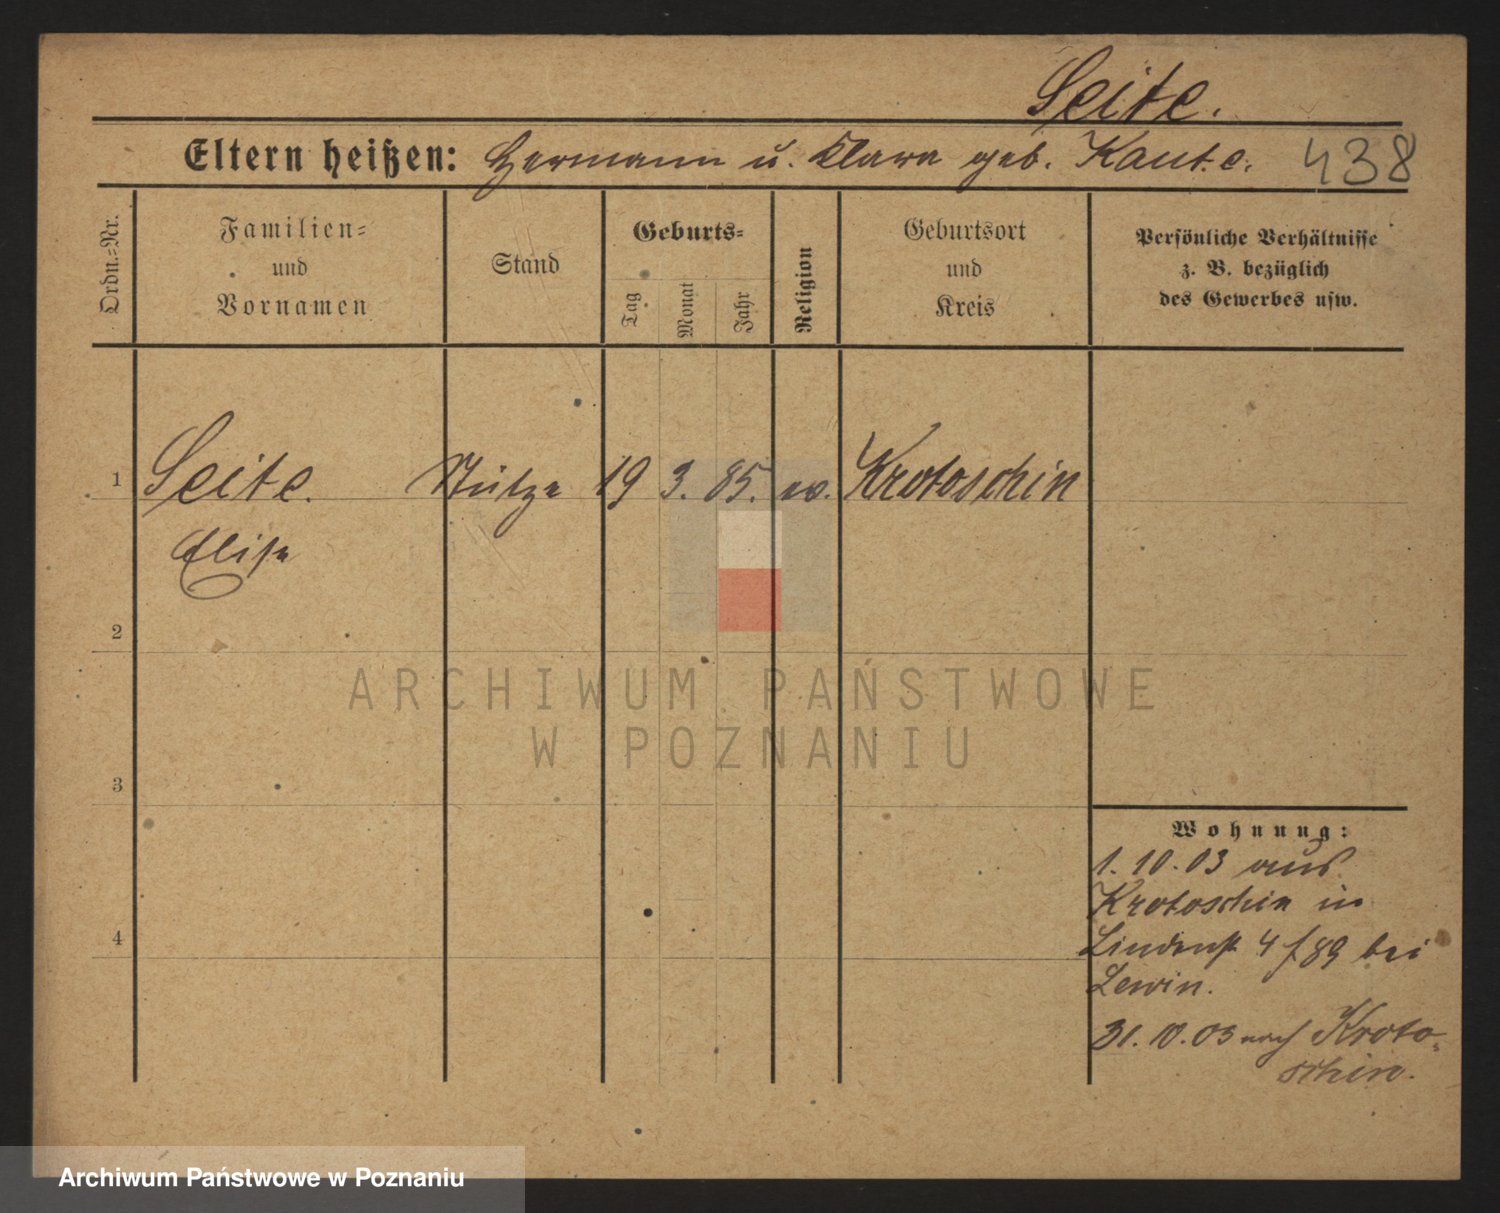 Seite.
Eltern heißen: Hermann u. Klara geb. Kaute. 438
Ordn.=Nr.
Familien=
und
Vornamen
Stand
Geburts=
Tag
Monat
Jahr
Religion
Geburtsort
und
Kreis
Persönliche Verhältnisse
z. B. bezüglich
des Gewerbes usw.
1 Seite. Stütze 19 3. 85. ev. Krotoschin
Elise
2
3
4
Wohnung:
1. 10. 03 aus
Krotoschin in
Lindenst. 4 f 89 bei
Lewin.
31. 10. 03 nach Kroto-
schin.
ARCHIWUM PAŃSTWOWE
W POZNANIU
Archiwum Państwowe w Poznaniu